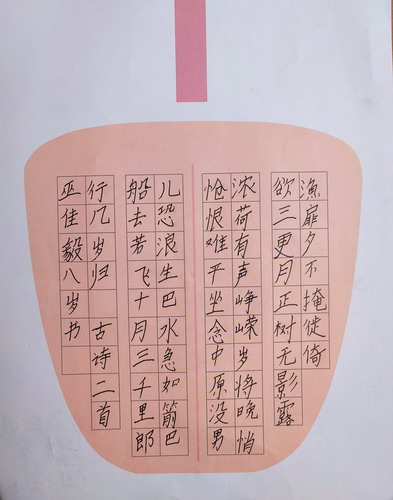 渔扉夕不掩徙倚
欲三更月正树无影露
浓荷有声峥嵘岁将晚悄
怆恨难平坐念中原没男
儿恐浪生巴水急如箭巴
船去若飞十月三千里郎
行几岁归 古诗二首
巫佳毅八岁书